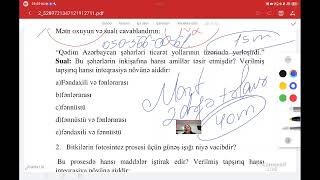 2_5289721347121912711.pdf
Mətn oxuyun və sualı cavablandırın:
"Qədim Azərbaycan şəhərləri ticarət yollarının üzərində yerləşirdi."
Sual: Bu şəhərlərin inkişafına hansı amillər təsir etmişdir? Verilmiş
tapşırıq hansı inteqrasiya növünə aiddir:
a)Fəndaxili və fənlərarası
b)fənlərarası
c)fənnüstü
d)fənlərarası və fənnüstü
e)fəndaxili və fənnüstü
2. Bitkilərin fotosintez prosesi üçün günəş işığı niyə vacibdir?
Bu prosesdə hansı maddələr iştirak edir? Verilmiş tapşırıq hansı
inteqrasiya növünə aiddir: